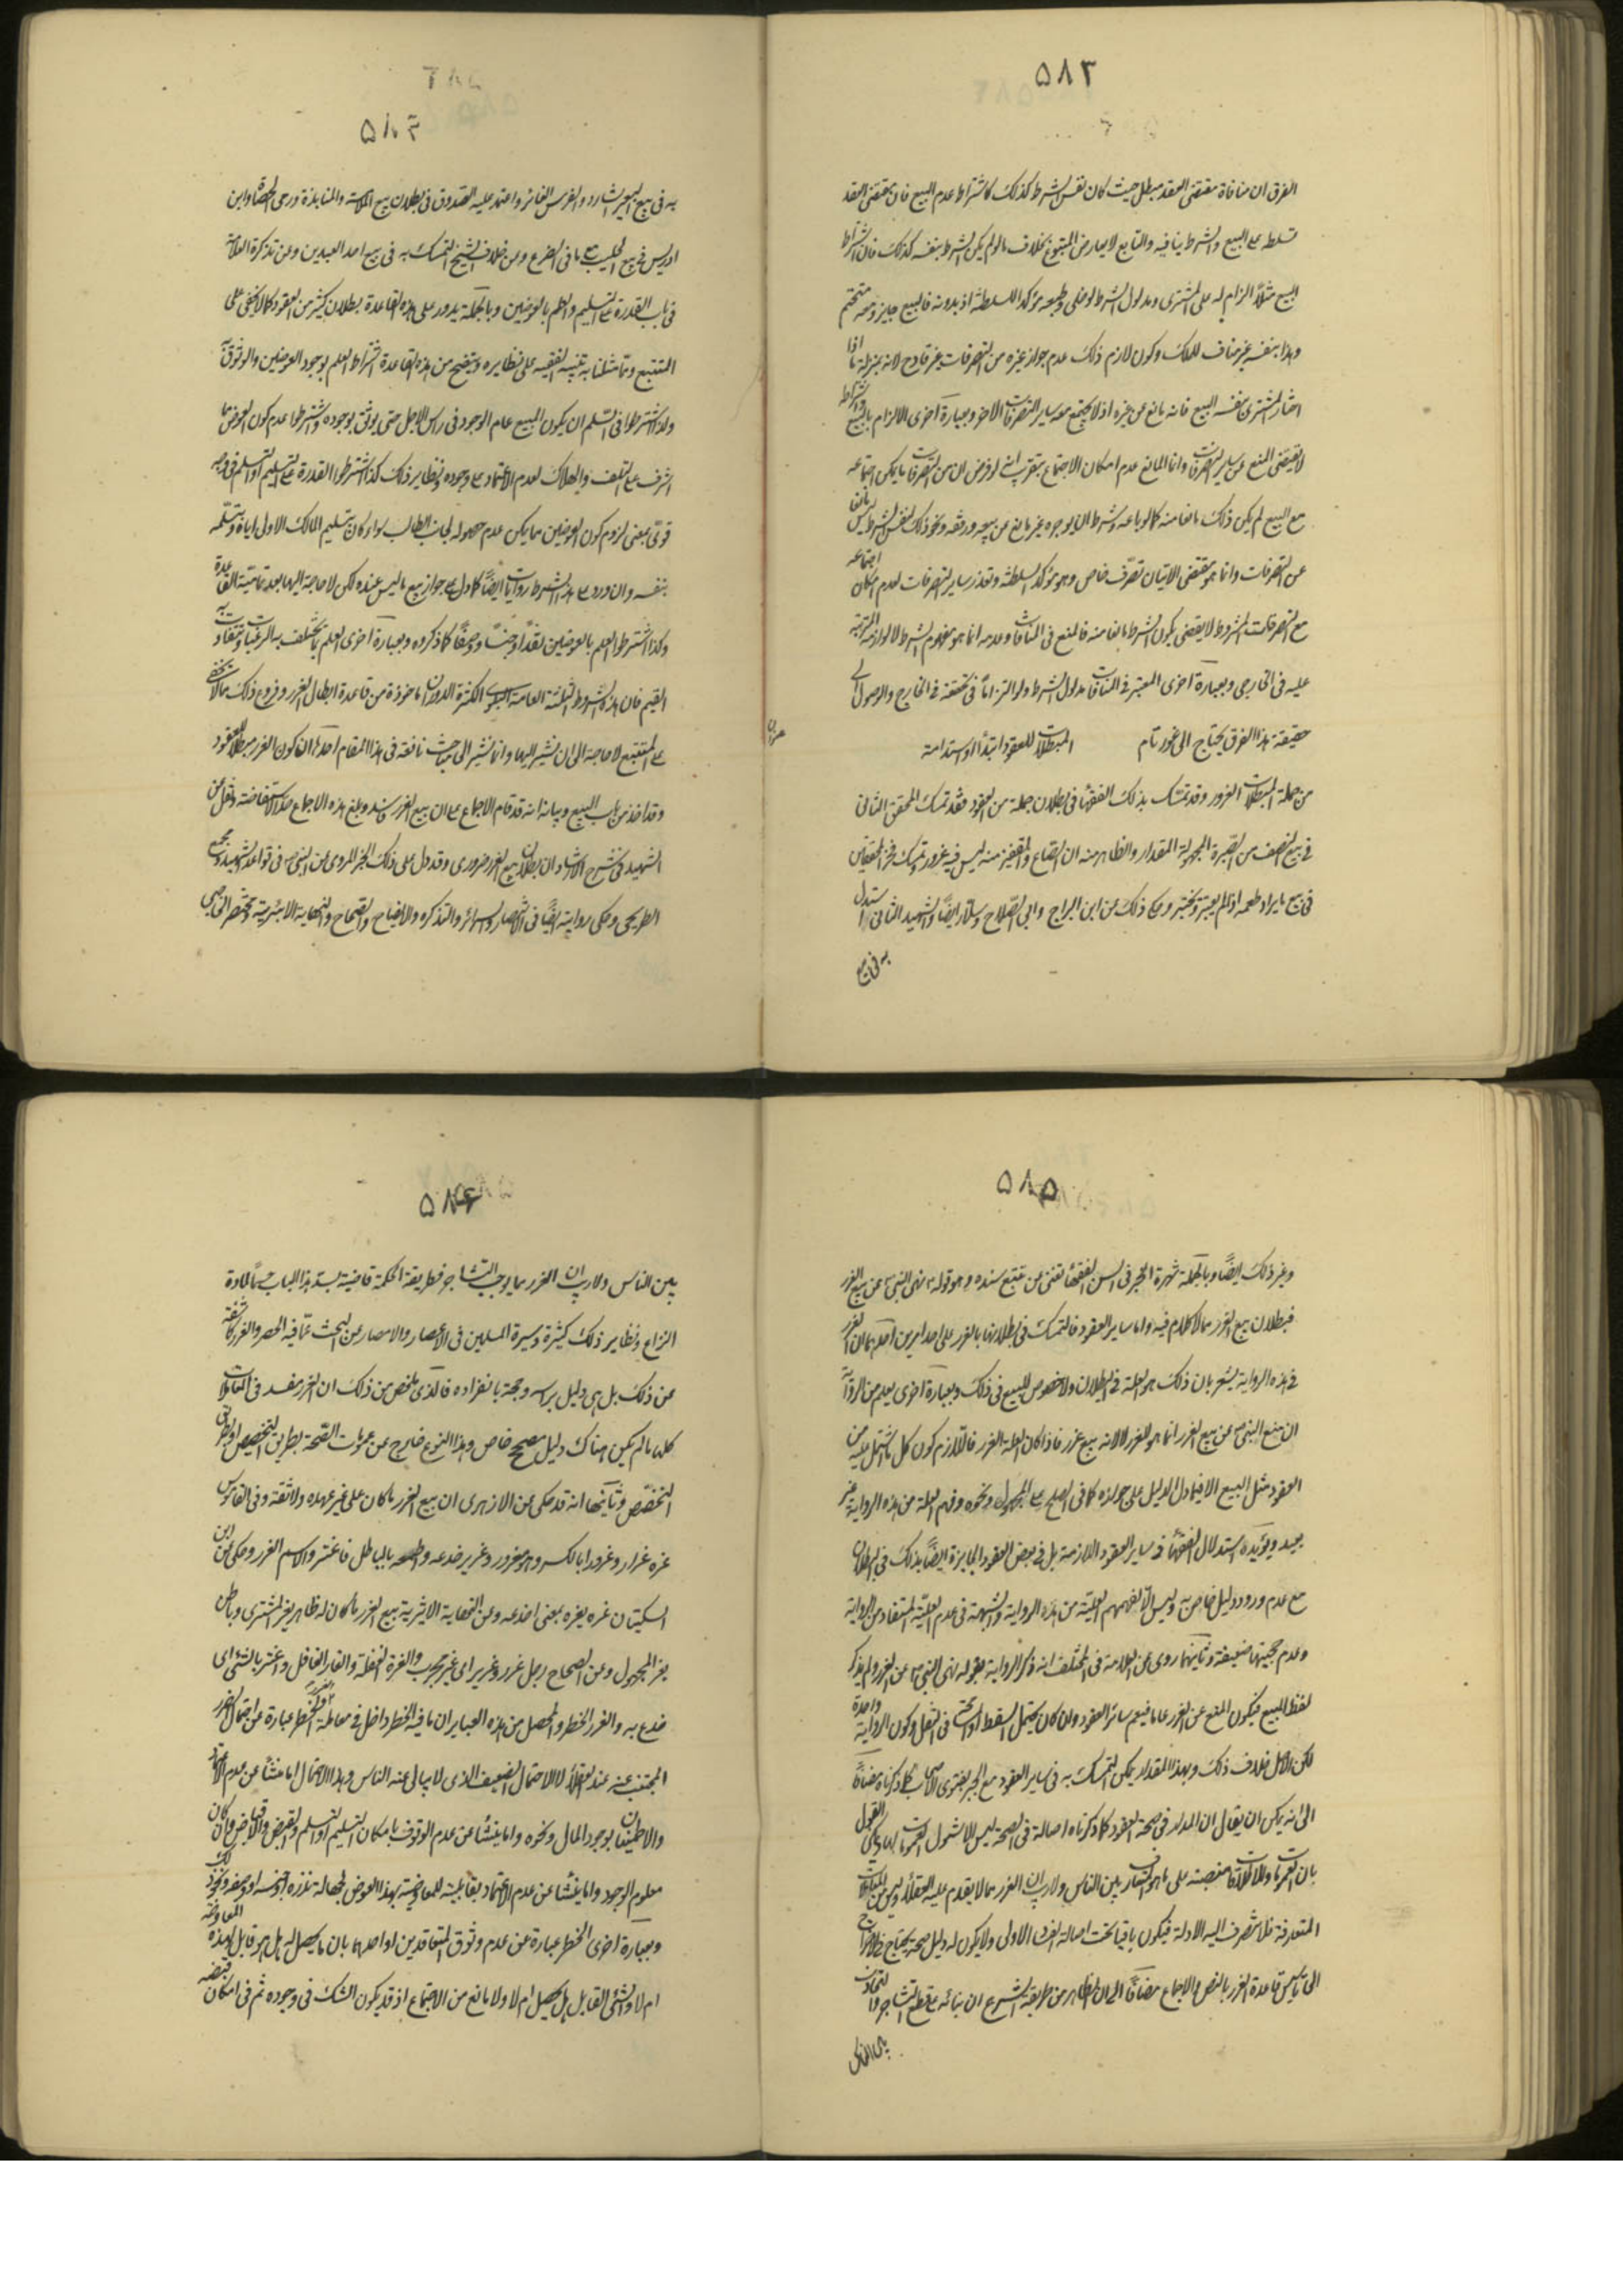 ٥٨٣
الفرق ان منافاة مقتضى العقد مبطل حيث كان نفس الشرط كذلك كاشتراط عدم البيع فان مقتضى العقد
تسلط على البيع والشرط ينافيه والتابع لا يعارض المتبوع بخلاف ما لو لم يكن الشرط بنفسه كذلك فان اشتراط
البيع مثلاً الزام له على المشترى ومدلول الشرط الوضعى وطبعه مؤكد السلطنة اذ بدونه فالبيع جايز ومعه متحتم
وهذا بنفسه غير مناف للملك وكون لازم ذلك عدم جواز غيره من التصرفات غير قادح لانه بمنزلة ما اذا
اختار المشترى بنفسه البيع فانه مانع عن غيره اذ لا يجتمع مع ساير التصرفات الاخر وبعبارة اخرى الالزام بالبيع
لا يقتضى المنع عن ساير التصرفات وانما المانع عدم امكان الاجتماع بتقريب انه لو فرض ان من التصرفات ما يمكن اجتماعه
مع البيع لم يكن ذلك مانعا منه كما لو باعه وشرط ان يوجره غير مانع عن بيعه ورقفه ونحو ذلك فنفس الشرط ليس مانعا
عن التصرفات وانما هو مقتضى الاتيان تصرف خاص وهو مؤكد السلطنة وتعذر ساير التصرفات لعدم امكان اجتماعه
مع التصرفات المشروط لا يقتضى بكون الشرط مانعا منه فالمنع فى المنافات وعدمه انما هو مفهوم الشرط لا لوازمه المترتبة
عليه فى الخارجى وبعبارة اخرى المعتبر فى المنافات مدلول الشرط ولو التزاماً فى تحققه فى الخارج والوصول الى
حقيقة هذا الفرق يحتاج الى غور تام المبطلات للعقود ابتدأ او استدامة
عنوان
من جملة المبطلات الغرور وقد تمسك بذلك الفقهأ فى بطلان جملة من العقود فقد تمسك المحقق الثانى
فى بيع النصف من الصبرة المجهولة المقدار والظاهر منه ان الصاع والقفيز منه ليس فيه غرور وتمسك فخر المحققين
فى بيع ما يراد طعمه اذا لم يعتبر ويختبر وحكى ذلك عن ابن البراج وابى الصلاح وسلار ايضاً والشهيد الثانى استدل
به فى بيع
٥٨٤
به فى بيع البعير الشارد والفرس الغائر واعتمد عليه الصدوق فى بطلان بيع الملامسة والمنابذة ورمى الحصاة وابن
ادريس فى بيع الحليب مع ما فى الضرع وعن خلاف الشيخ التمسك به فى بيع احد العبدين وعن تذكرة العلامة
فى باب القدرة على التسليم والعلم بالعوضين وبالجملة يدور على هذه القاعدة بطلان كثير من العقود كما لا يخفى على
المتتبع ومما مثلنا به تنبيه الفقيه على نظايره ويتضح من هذه القاعدة اشتراط العلم بوجود العوضين والوثوق به
ولذا اشترطوا فى السلم ان يكون المبيع عام الوجود فى راس الاجل حتى يوثق بوجوده واشترطوا عدم كون العوض مما
اشرف على التلف والهلاك لعدم الاعتماد على وجوده ونظاير ذلك كذا اشترطوا القدرة على التسليم او التسلم فى وجه
قوى بمعنى لزوم كون العوضين مما يمكن عدم حصوله لجانب الطالب سواء كان بتسليم المالك الاولى اياه وبتسلمه
بنفسه وان ورد على هذا الشرط روايات ايضاً كما دل على جواز بيع ما ليس عنده لكن لا حاجة اليها بعد تمامية القاعدة
وكذا اشترطوا العلم بالعوضين نقداً وجنساً ووصفاً كما ذكروه وبعبارة اخرى العلم بما تختلف به الرغبات وتتفاوت به
القيم فان هذه الشروط الثلثة العامة البلوى الكثيرة الدوران ماخوذة من قاعدة ابطال الغرر وفروع ذلك مما لا تخفى
على المتتبع لا حاجة الى ان نشير اليها وانما نشير الى مباحث نافعة فى هذا المقام احدها ان كون الغرر مبطلاً للعقود
وقد اخذ من باب البيع وبيانه انه قد قام الاجماع على ان بيع الغرر فاسد وبلغ هذه الاجماع حد الاستفاضة ونقل عن
الشهيد فى شرح الارشاد ان بطلان بيع الغرر ضرورى وقد دل على ذلك الخبر المروى عن النبى ص فى قواعد الشهيد ومجمع
الطريحى وحكى روايته ايضاً فى الانتصار والسرائر والتذكره والايضاح والصحاح والنهاية الاثيرية ومختصر النهاية
٥٨٥
وغير ذلك ايضاً وبالجملة شهرة الخبر فى السن الفقهأ تغنى من تتبع سنده وهو قوله نهى النبى ص عن بيع الغرر
فبطلان بيع الغرر مما لا كلام فيه واما ساير العقود فالتمسك فى بطلانها بالغرر على احد امرين احدهما ان الغرر
فى هذه الرواية يشعر بان ذلك هو العلة فى البطلان ولا خصوص للبيع فى ذلك وبعبارة اخرى يعلم من الرواية
ان منع النبى ص عن بيع الغرر انما هو للغرر لا لانه بيع غرر فاذا كان العلة الغرر فاللازم كون كل ما اشتمل عليه من
العقود مثل البيع الا فيما دل الدليل على جوازه كما فى الصلح على المجهول ونحوه وفهم العلة من هذه الرواية غير
بعيد ويؤيده استدلال الفقهأ فى ساير العقود اللازمة بل فى بعض العقود الجايزة ايضاً بذلك فى البطلان
مع عدم ورود دليل خاص به وليس الا لفهمهم العلية من هذه الرواية والشبهة فى عدم العلية المستفاد من الرواية
وعدم حجيتها ضعيفة وثانيهما روى عن العلامة فى المختلف انه ذكر الرواية بقوله نهى النبى ص عن الغرر ولم يذكر
لفظ البيع فيكون المنع عن الغرر عاما فيعم سائر العقود وان كان يحتمل السقط او السهو فى النقل وكون الرواية واحدة
لكن الاصل خلاف ذلك وبهذا المقدار يمكن التمسك به فى ساير العقود مع الجبر بفتوى الاصحاب كما ذكرناه مضافاً
الى انه يمكن ان يقال ان المدار فى صحة العقود كما ذكرناه اصالة فى الصحة ليس الا شمول العمومات لها ويمكن القول
بان العمومات والاطلاقات منصبة على ما هو المتعارف بين الناس ولا ريب ان الغرر مما لا يقدم عليه العقلأ وليس من المعاملات
المتعارفة فلا تنصرف اليه الادلة فيكون باقيا تحت اصالة الفساد الاولى ولا يكون له دليل صحة يحتاج فى الاخراج
الى تاسيس قاعدة الغرر بالنص والاجماع مضافاً الى ان الظاهر من طريقة الشرع ان بنائه على قطع التشاجر والتجاذب
بين الناس
٥٨٦
بين الناس ولا ريب ان الغرر مما يوجب التشاجر فطريقة الحكمة قاضية بسد هذا الباب حسماً لمادة
النزاع ونظاير ذلك كثيرة وسيرة المسلمين فى الاعصار والامصار عن البحث عما فيه الخطر والغرر كاشفة
عن ذلك بل هى دليل براسه وحجة بانفراده فالذى تلخص من ذلك ان الغرر مفسد فى المعاملات
كلها ما لم يكن هناك دليل مصحح خاص وهذا النوع خارج عن عمومات الصحة بطريق التخصيص او بطريق
التخصص وثانيها انه قد حكى عن الازهرى ان بيع الغرر ما كان على غير عهده ولا ثقة وفى القاموس
غره غرار وغرورا بالكسر وهو مغرور وغرير خدعه واطمعه بالباطل فاغتر والاسم الغرر وحكى عن ابن
السكيت ان غره يغره بمعنى خدعه وعن النهاية الاثيرية بيع الغرر ما كان له ظاهر يغر المشترى وباطن
يغر المجهول وعن الصحاح رجل غرر وغرير اى غير مجرب والغرة الغفلة والغار الغافل واغتر بالشئ اى
خدع به والغرر الخطر والمحصل من هذه العباير ان ما فيه الخطر داخل فى معاملة الغرر والخطر عبارة عن احتمال الضرر
المجتنب عنه عند العقلأ لا الاحتمال الضعيف الذى لا يبالى عنه الناس وهذا الاحتمال اما منشأ عن عدم الاعتماد
والاطمينان بوجود المال ونحوه واما ينشأ عن عدم الوثوق بامكان التسليم او التسلم والقبض والاقباض وان كان
معلوم الوجود واما ينشأ عن عدم الاعتماد بقابلية للمعاوضة بهذا العوض لجهالة قدره او جنسه او وصفه ونحو ذلك
وبعبارة اخرى الخطر عبارة عن عدم وثوق المتعاقدين او احدهما بان ما يحصل له هل هو قابل لهذه المعاوضة
ام لا والشئ القابل هل يحصل ام لا ولا مانع من الاجتماع اذ قد يكون الشك فى وجوده ثم فى امكان قبضه